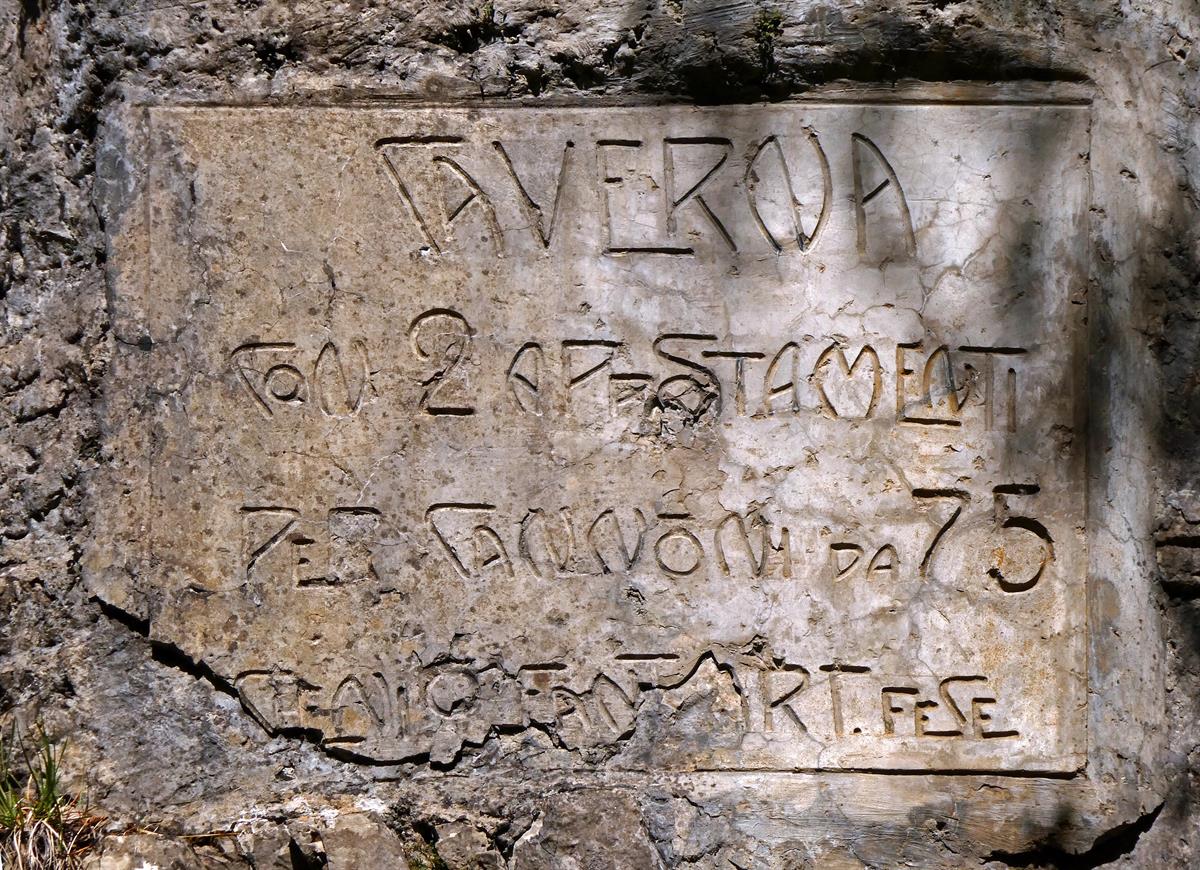 CAVERNA
CON 2 APPOSTAMENTI
PER CANNŌNI DA 75
GENIO FANT ART. FESE